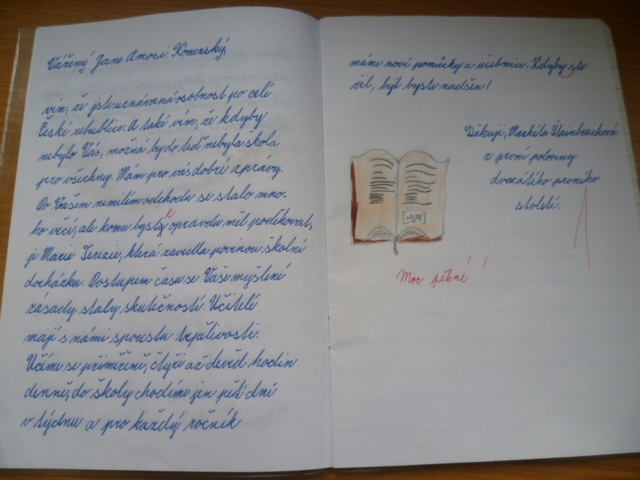 Vážený Jane Amosi Komenský,
vím, že jste uznávaná osobnost po celé
České republice. A také vím, že kdyby
nebylo Vás, možná by do teď nebyla škola
pro všechny. Mám pro vás dobré zprávy.
Po Vašem nemilém odchodu se stalo mno-
ho věcí, ale komu byste opravdu měl poděkovat,
je Marie Terezie, která zavedla povinou školní
docházku. Postupem času se Vaše myšlení
zásady staly skutečností. Učitelé
mají s námi spoustu trpělivosti.
Učíme se přiměřeně, čtyři až devět hodin
denně, do školy chodíme jen pět dní
v týdnu a pro každý ročník
máme nové pomůcky a učebnice. Kdyby ste
žil, byl byste nadšen!
Děkuji, Markéta
z první poloviny
dvacátého prvního
století.
Moc pěkné!